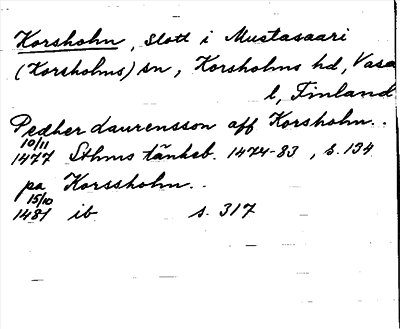 Korsholm, slott i Mustasaari
(Korsholms) sn, Korsholms hd, Vasa
l, Finland
Pedher laurensson aff Korsholm..
10/11
1477 Sthms tänkeb. 1474-83, s. 134
pa Korssholm..
15/10
1481 ib s. 317